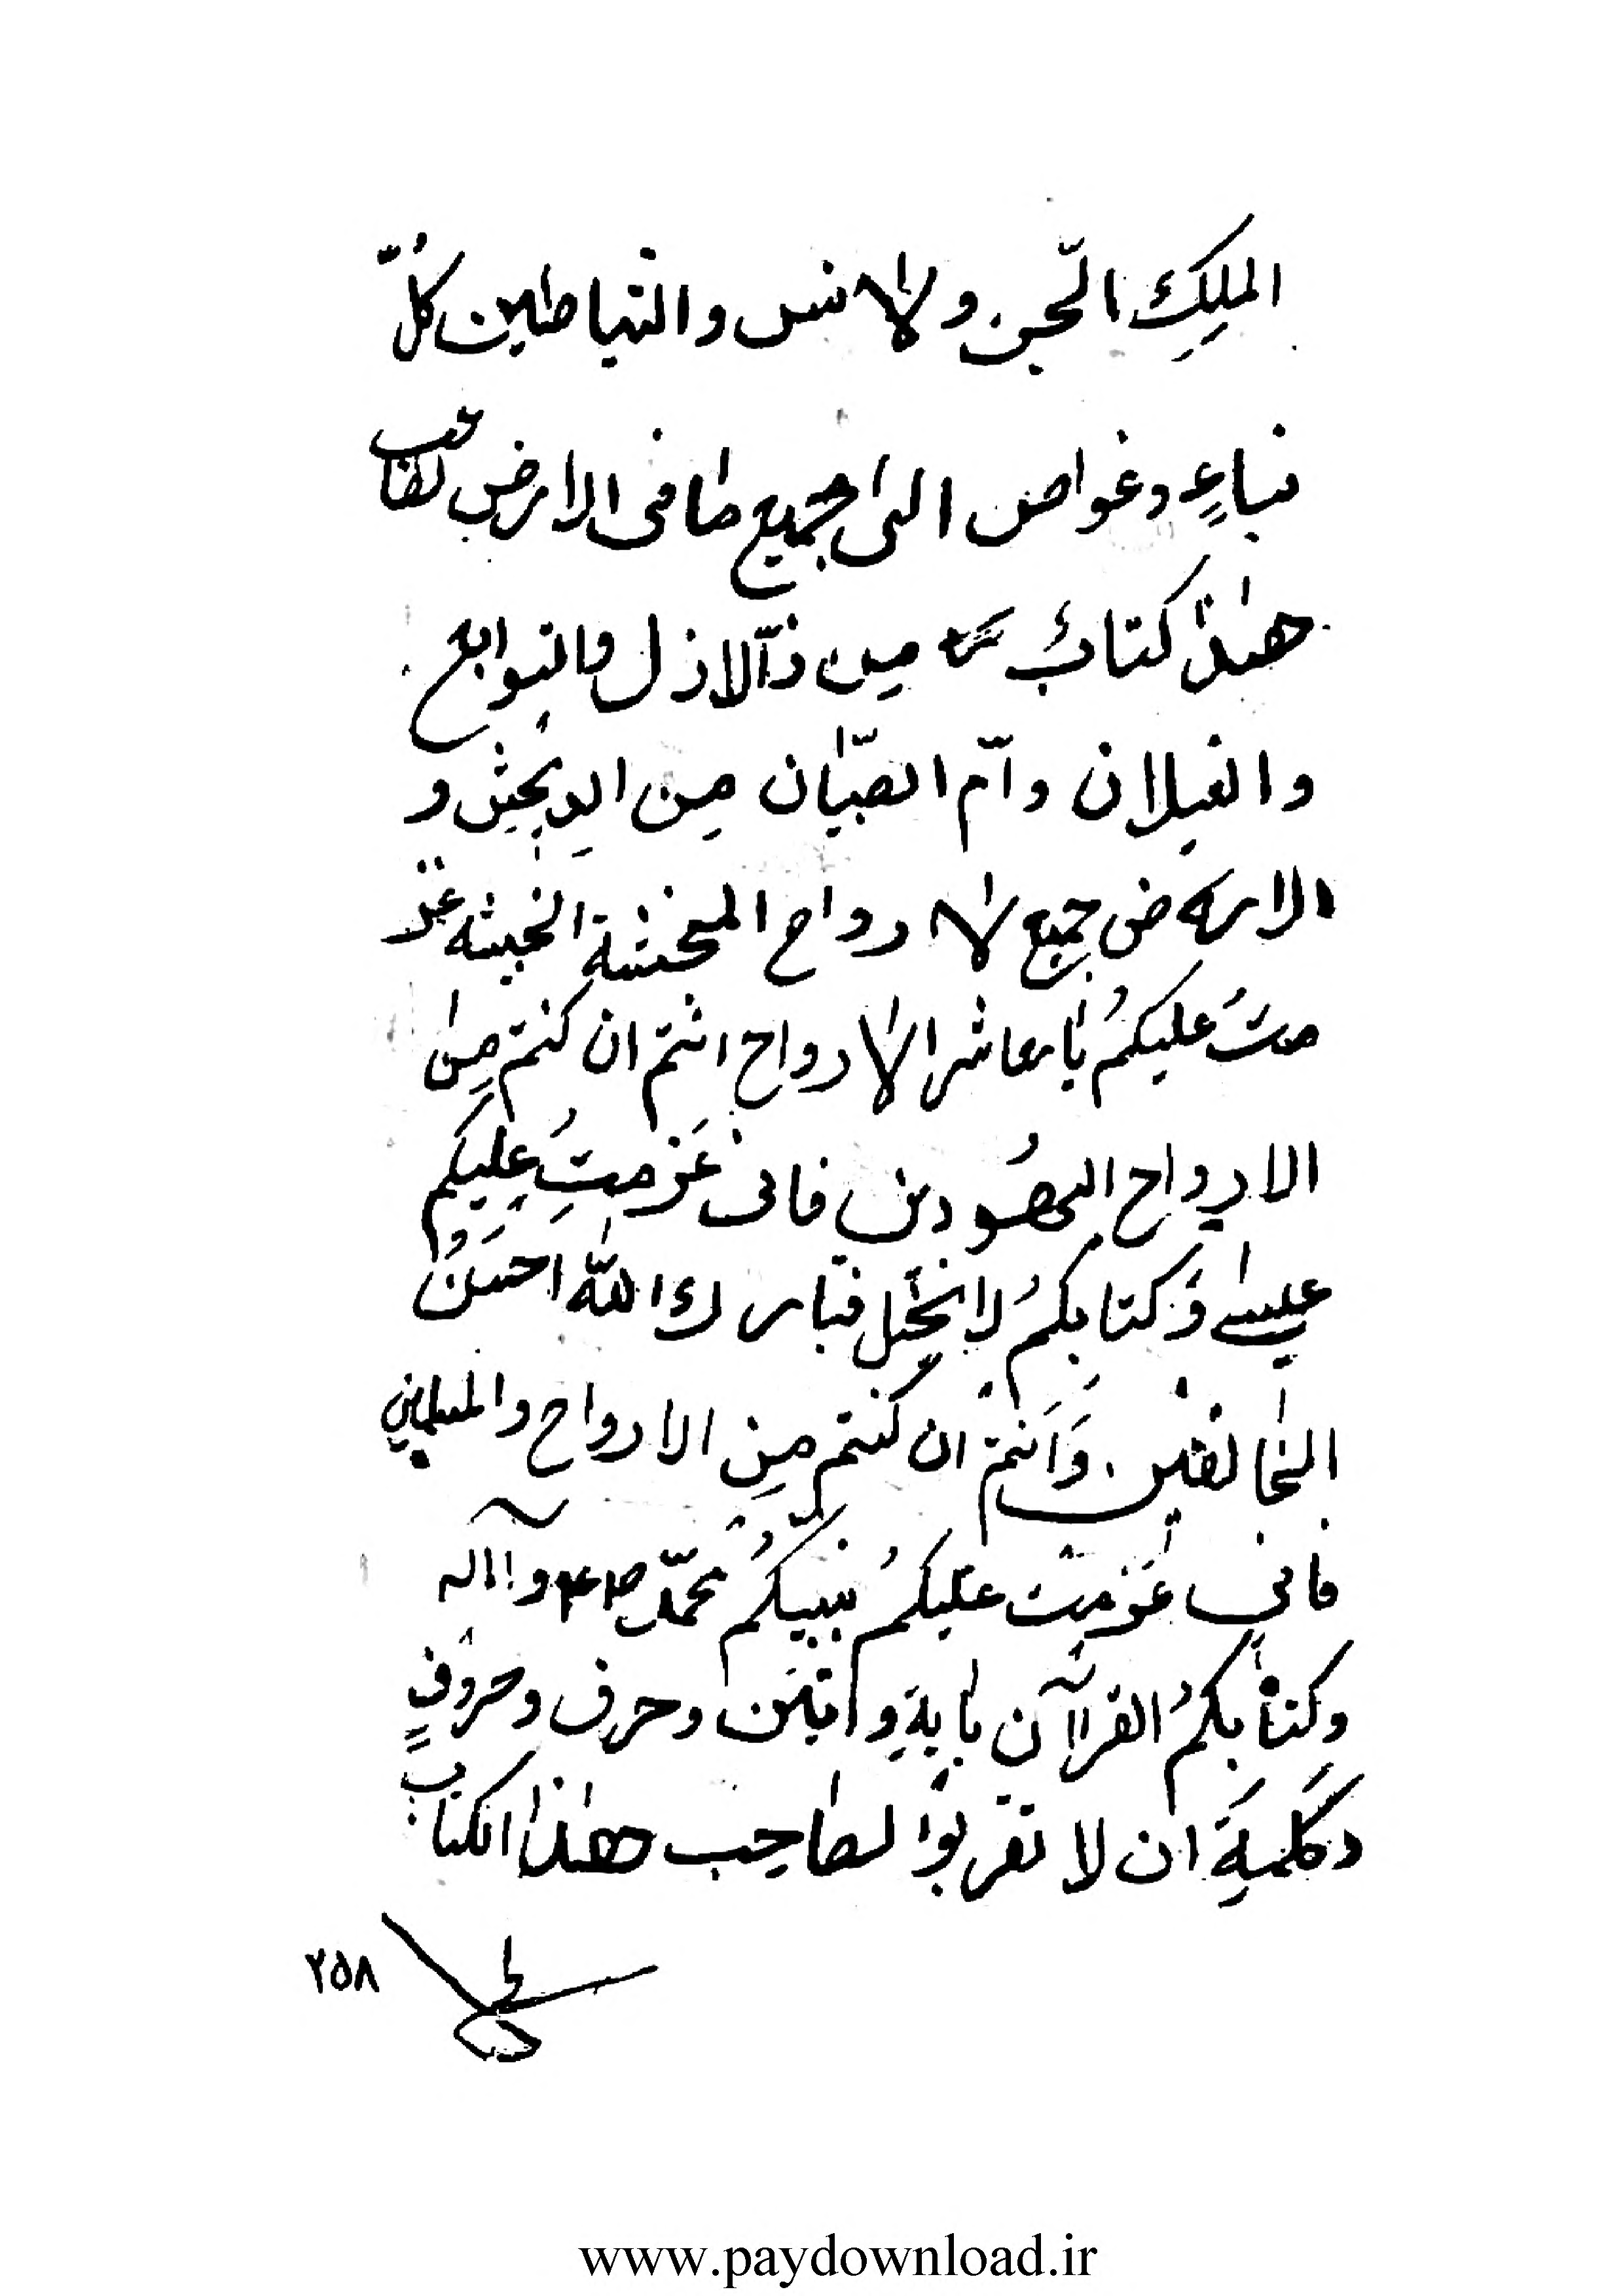 الملِكِ الّجن والانس والشیاطین کلُّ
بناءٍ وغواص الی جمیع ما فی الارض لصاحب
هٰذا کتابُ مِن ذّالازل والتوابع
والغیلان وآمّ الصبّیان مِن الرِیحِ و
الارض جمیع الارواح المخنثة الخبیثه عز
متُ علیکمُ یا معاشر الارواح انتم ان کنتم مِن
الارواح الیهُودین فانی عَزمتِ علیکم
عیسیٰ وَکتابکمُ لانجیل فتبارک الله احسَنُ
الخٰالقین . وَاَنتم ان کنتم مِنِ الارواح والمسلمین
فانیِ عَزمت علیکمُ بنبیکُمُ محمّد ص وآله
وکتابِکمُ القرآن بایةِ وایتین وحرف وحروفٍ
وکلمةِ ان لا تقربوا لصٰاحِب هٰذا الکتاب
۲۵۸
www.paydownload.ir